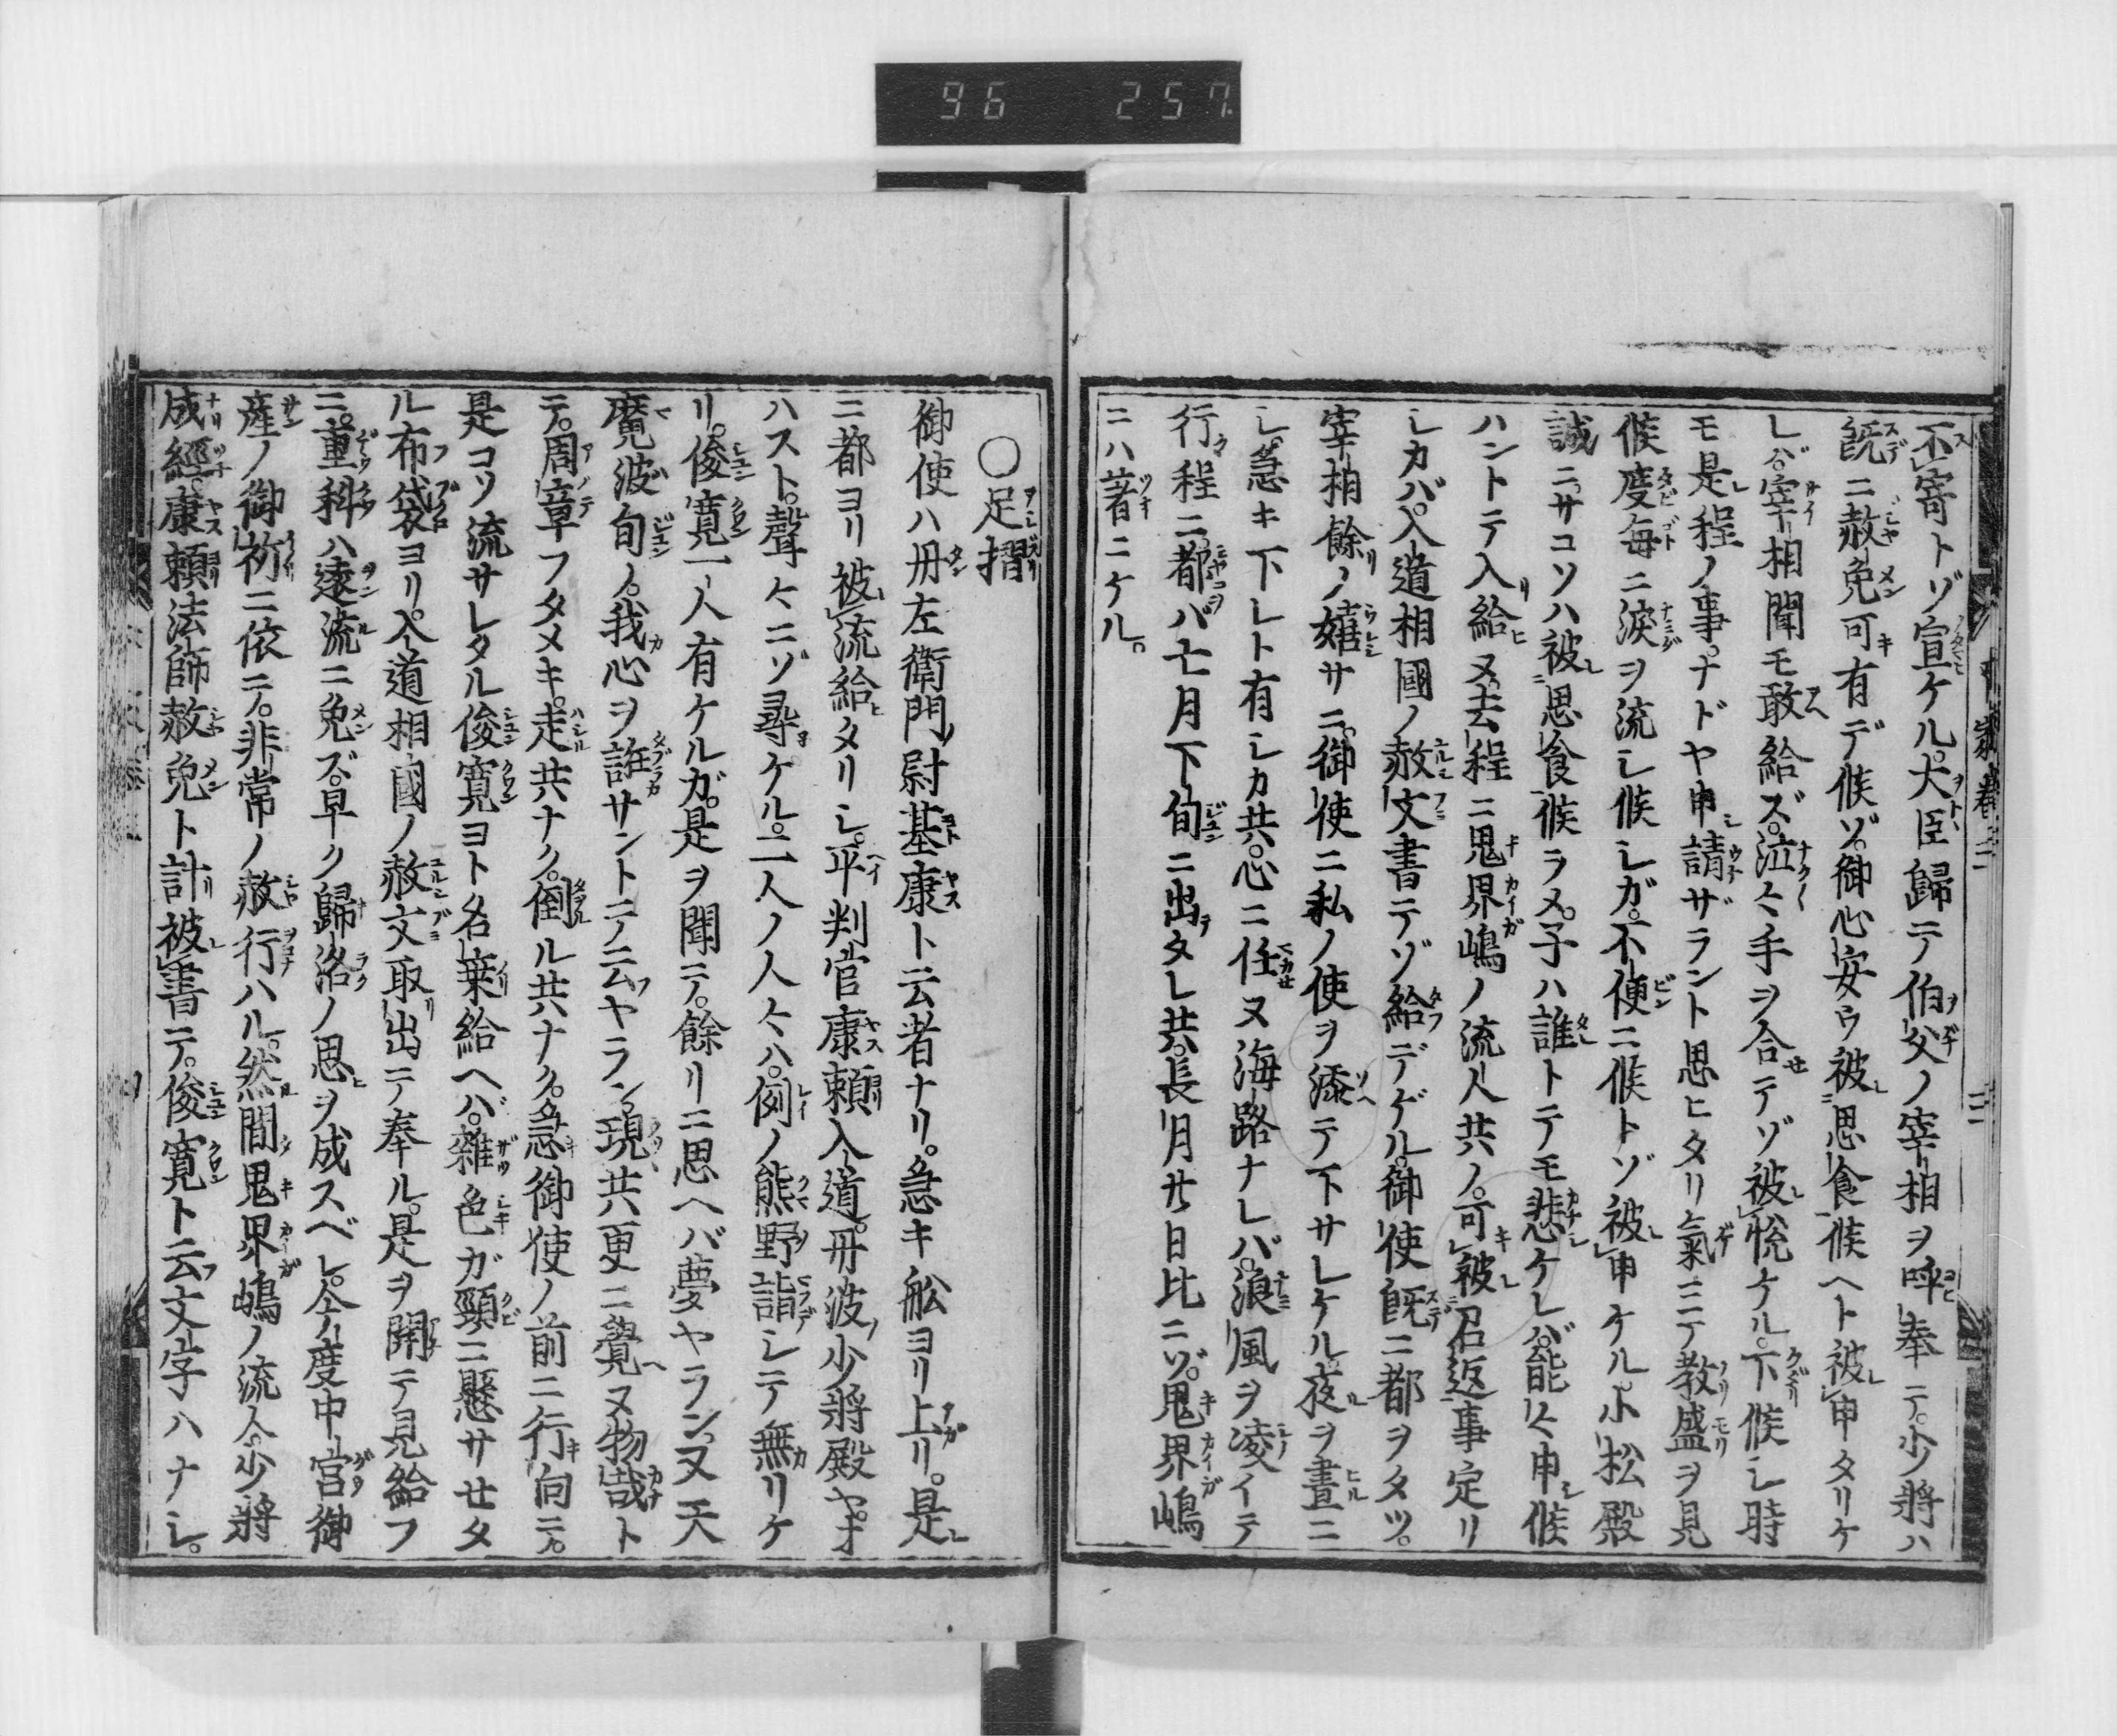 96 257
不寄トゾ宣ケル。大臣歸テ伯父ノ宰相ヲ呼奉テ。少將ハ
既ニ赦免可有デ候ゾ。御心安ウ被思食候ヘト被申タリケ
レバ。宰相聞モ敢給ズ。泣〻手ヲ合テゾ被悦ケル。下候シ時
モ是程ノ事。ナドヤ申請ザラント思ヒタリ氣ニテ教盛ヲ見
候度毎ニ淚ヲ流シ候シガ。不便ニ候トゾ被申ケル。小松殿
誠ニ。サコソハ被思食候ラメ。子ハ誰トテモ悲ケレバ。能〻申候
ハントテ入給ヌ。去程ニ鬼界嶋ノ流人共ノ。可被召返事定リ
シカバ。入道相國ノ赦文書テゾ給デゲル。御使既ニ都ヲタツ。
宰相餘ノ嬉サニ。御使ニ私ノ使ヲ添テ下サレケル。夜ヲ晝ニ
シ。急キ下レト有シカ共。心ニ任ヌ海路ナレバ。浪風ヲ凌イテ
行程ニ。都ヲバ七月下旬ニ出タレ共。長月廿日比ニゾ。鬼界嶋
ニハ著ニケル。
〇足摺
御使ハ丹左衛門尉基康ト云者ナリ。急キ舩ヨリ上リ。是
ニ都ヨリ被流給タリシ。平判官康頼入道。丹波少將殿ヤオ
ハスト。聲〻ニゾ尋ケル。二人ノ人〻ハ。例ノ熊野詣シテ無リケ
リ。俊寛一人有ケルガ。是ヲ聞テ。餘リニ思ヘバ夢ヤラン。又天
魔波旬ノ。我心ヲ誑サントテノ云ヤラン。現共更ニ覺ヌ物哉ト
テ。周章フタメキ。走共ナク。倒ル共ナク。急御使ノ前ニ行向テ。
是コソ流サレタル俊寛ヨト名乗給ヘバ。雜色ガ頸ニ懸サセタ
ル布袋ヨリ。入道相國ノ赦文取出テ奉ル。是ヲ開テ見給フ
ニ。重科ハ遠流ニ免ズ。早ク歸洛ノ思ヲ成スベシ。今度中宮御
産ノ御祈ニ依テ。非常ノ赦行ハル。然間鬼界嶋ノ流人。少將
成經。康頼法師赦免ト計被書テ。俊寛ト云文字ハナシ。